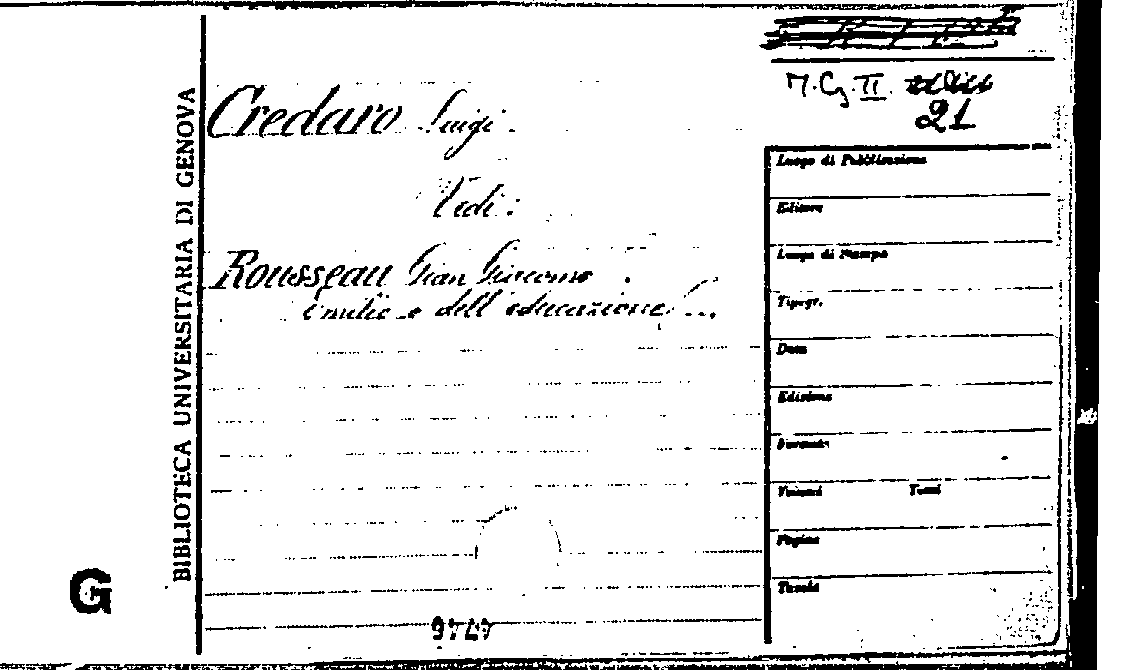 M. G. II.
21
Credaro Luigi.
Vedi:
Rousseau Gian Giacomo.
Emilio o dell'educazione, ...
BIBLIOTECA UNIVERSITARIA DI GENOVA
Luogo di Pubblicazione
Editore
Luogo di Stampa
Tipogr.
Data
Edizione
Formato
Volumi Tomi
Pagine
Tavole
G